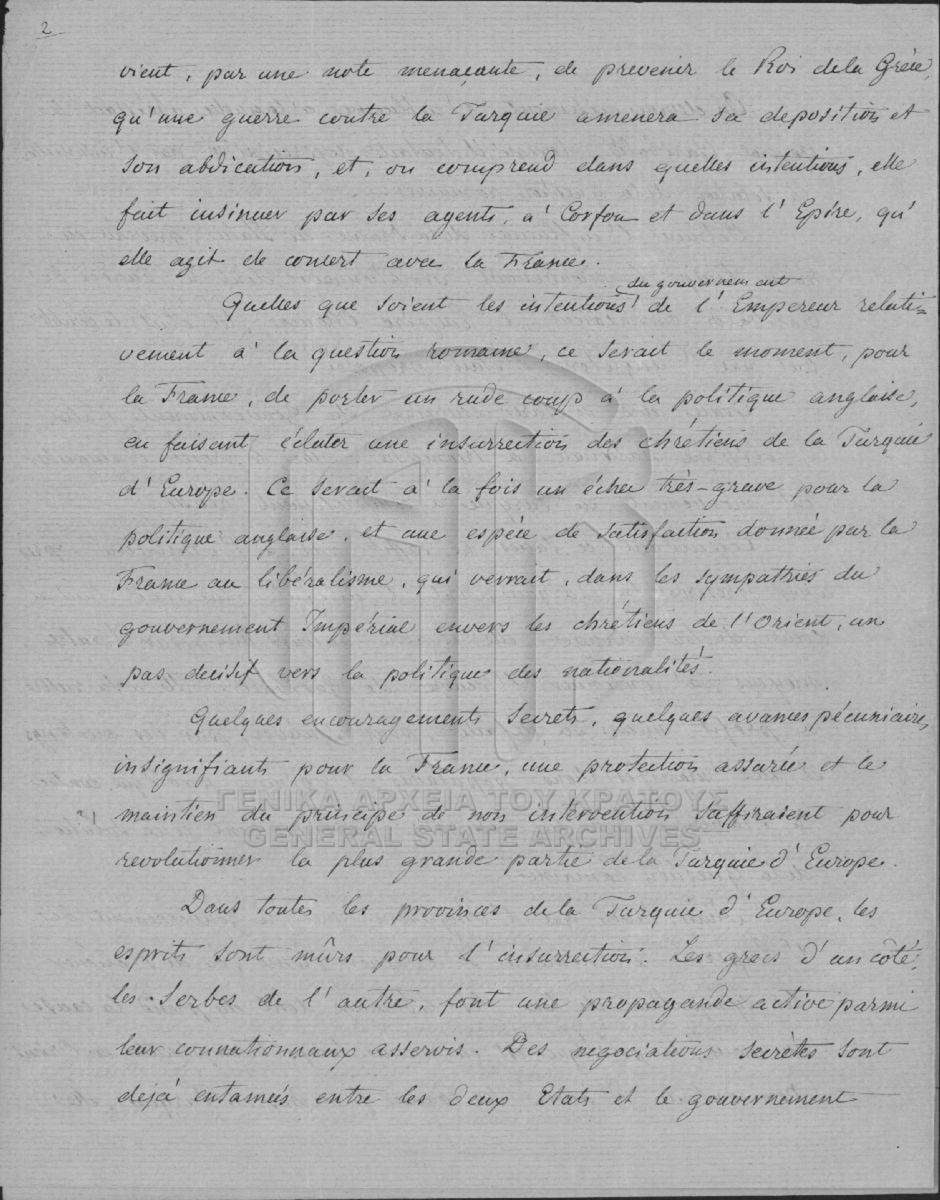 2
vient, par une note menaçante, de prevenir le Roi de la Grèce,
qu'une guerre contre la Turquie amenera sa deposition et
son abdication, et, on comprend dans quelles intentions, elle
fait insinuer par ses agents, à Corfou et dans l'Epire, qu'
elle agit de concert avec la France.
du gouvernement
Quelles que soient les intentions de l'Empereur relati-
vement à la question romaine, ce serait le moment, pour
la France, de porter un rude coup à la politique anglaise,
en faisant éclater une insurrection des chrétiens de la Turquie
d'Europe. Ce serait à la fois un échec très-grave pour la
politique anglaise, et une espèce de satisfaction donnée par la
France au libéralisme, qui verrait, dans les sympathies du
gouvernement Impérial envers les chrétiens de l'Orient, un
pas decisif vers la politique des nationalités.
Quelques encouragements secrets, quelques avances pécuniaires,
insignifiants pour la France, une protection assurée et le
maintien du principe de non intervention suffiraient pour
revolutionner la plus grande partie de la Turquie d'Europe.
ΓΕΝΙΚΑ ΑΡΧΕΙΑ ΤΟΥ ΚΡΑΤΟΥΣ
GENERAL STATE ARCHIVES
Dans toutes les provinces de la Turquie d'Europe, les
esprits sont mûrs pour l'insurrection. Les grecs d'un côté,
les Serbes de l'autre, font une propagande active parmi
leur connationnaux asservis. Des negociations secrètes sont
dejà entamées entre les deux Etats et le gouvernement